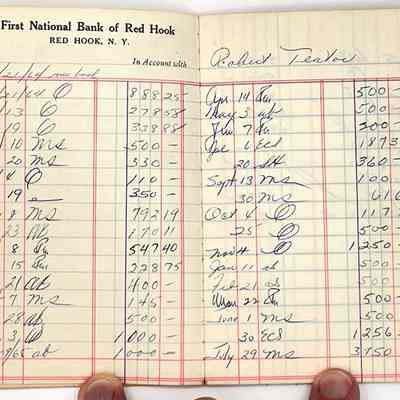 First National Bank of Red Hook
RED HOOK, N. Y.
In Account with
21/64
21/64 O 888 25
13 O 278 58
19 O 338 88
10 MS 500 -
20 MS 330 -
4 O 110 -
19 350 -
8 MS 792 19
23 170 11
8 547 40
15 228 75
21 ab 400 -
7 MS 145 -
28 ab 500 -
3 1000 -
/65 ab 1000 -
Robert Teator
Apr 14 500 -
May 3 ab 500 -
Jun 7 300 -
6 ECS 1873
20 360 -
Sept 13 MS 100 -
30 MS 616
Oct 4 O 117
25 O 500 -
Nov 4 O 1250 -
Jan 11 ab
Feb 21 ab
22 500 -
June 1 MS 500 -
30 ECS 1256 -
July 29 MS 3750